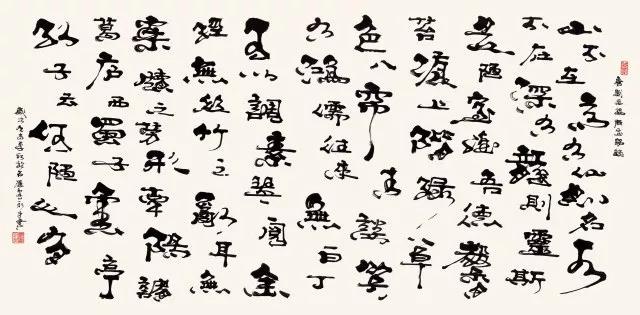 山不在高有仙則名水
不在深有龍則靈斯
是陋室惟吾德馨
苔痕上階綠草
色入帘青談笑
有鴻儒往來無白丁
可以調素琴閱金
經無絲竹之亂耳無
案牘之勞形南陽諸
葛廬西蜀子雲亭
孔子云何陋之有